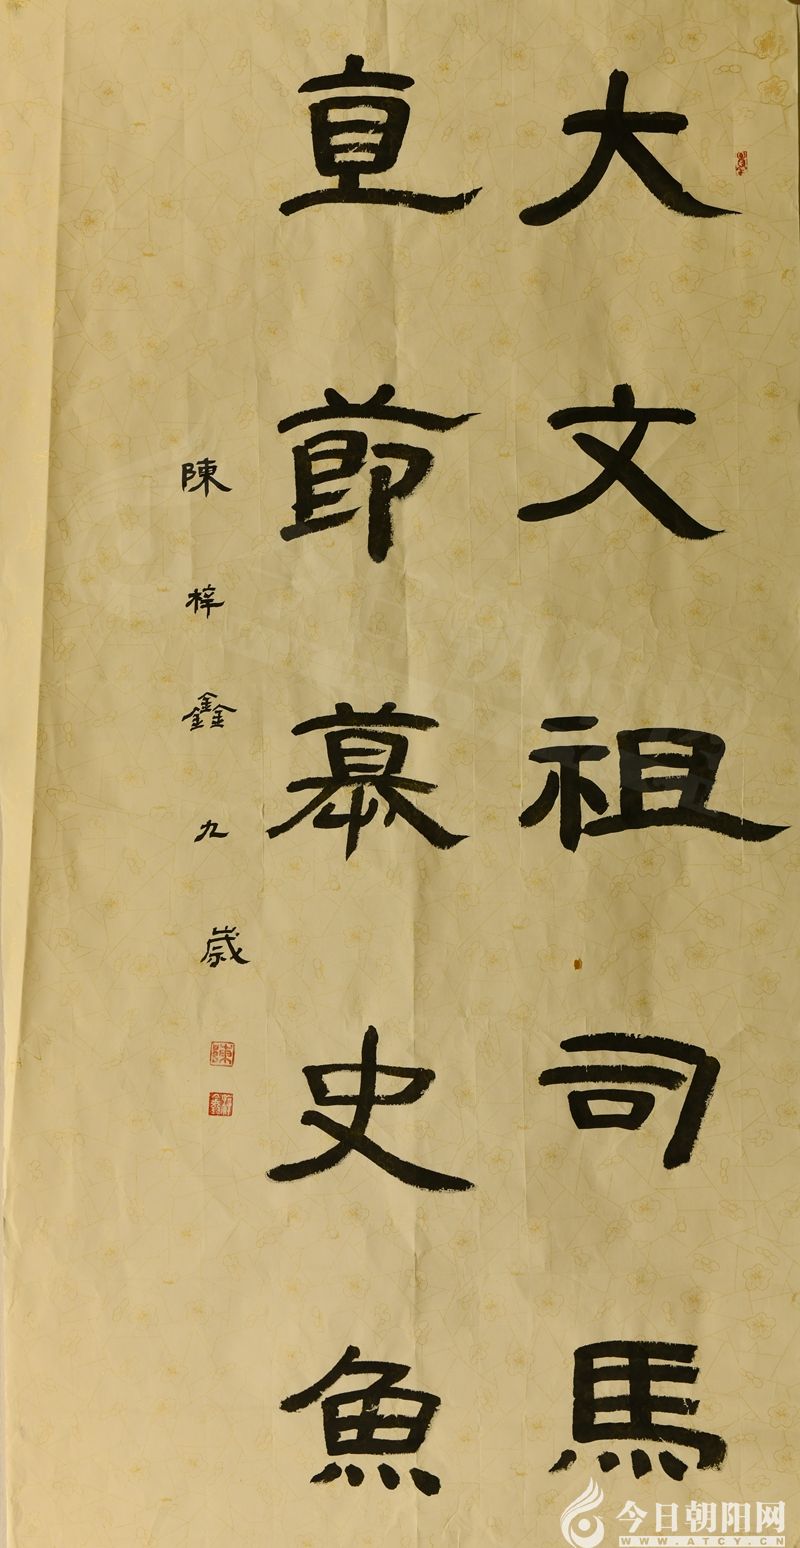 大文祖司馬
直節慕史魚
陳梓鑫九歲
今日朝阳网
WWW.ATCY.CN